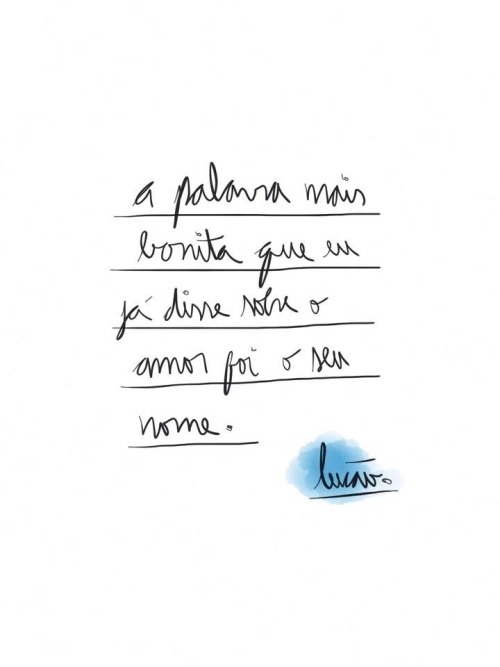 a palavra mais
bonita que eu
já disse sobre o
amor foi o seu
nome.
lucão.